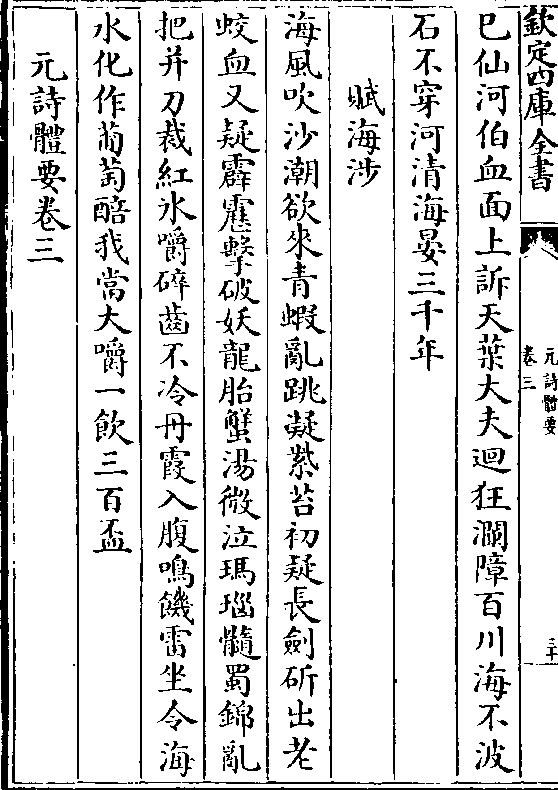 欽定四庫全書
元詩體要
卷三
三十
巳仙河伯血面上訴天葉大夫迴狂瀾障百川海不波
石不穿河清海晏三千年
賦海涉
海風吹沙潮欲來青蝦亂跳凝紫苔初疑長劍斫出老
蛟血又疑霹靂擊破妖龍胎蟹湯微泣瑪瑙髓蜀錦亂
把并刀裁紅氷嚼碎齒不冷丹霞入腹鳴饑雷坐令海
水化作葡萄醅我當大嚼一飲三百盃
元詩體要卷三